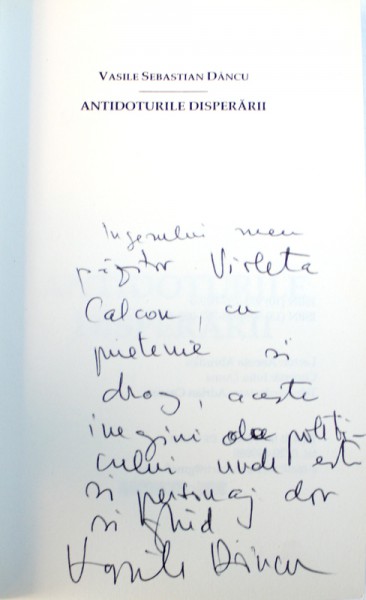 VASILE SEBASTIAN DÂNCU
ANTIDOTURILE DISPERĂRII
Îngerului meu
păzitor Violeta
Calcou, cu
prietenie și
drag, aceste
imagini ale politi-
cului unde este
și personaj dar
și ghid
Vasile Dâncu